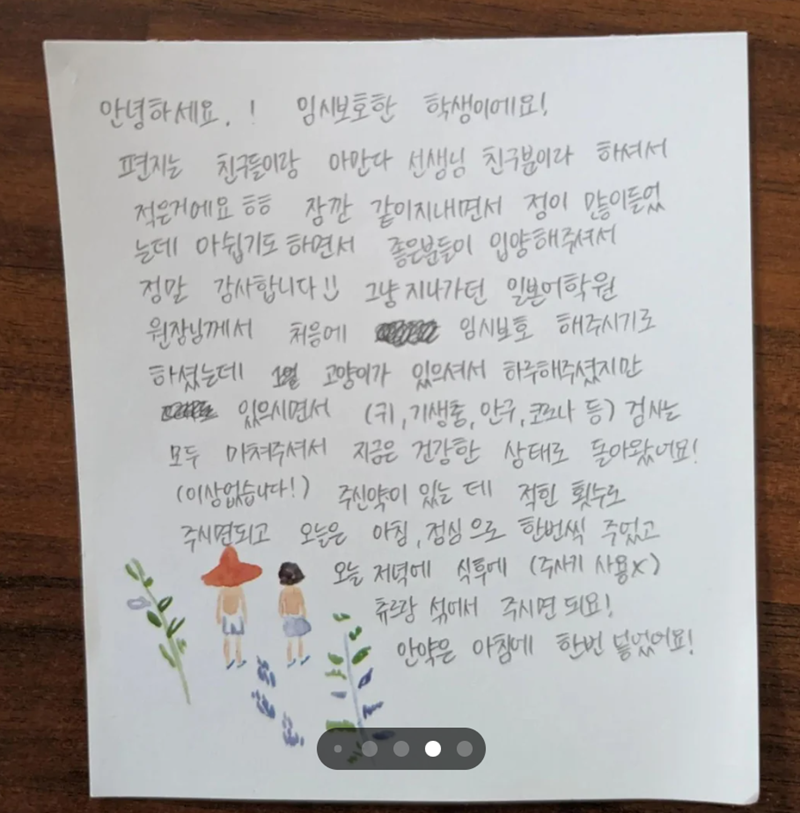 안녕하세요. ! 임시보호한 학생이에요!
편지는 친구들이랑 아만다 선생님 친구분이라 하셔서
적은거에요 ㅎㅎ 잠깐 같이지내면서 정이 많이들었
는데 아쉽기도 하면서 좋은분들이 입양해주셔서
정말 감사합니다!! 그냥 지나가던 일본어학원
원장님께서 처음에 임시보호 해주시기로
하셨는데 고양이가 있으셔서 하루해주셨지만
있으시면서 (키, 기생충, 안구, 코로나 등) 검사는
모두 마쳐주셔서 지금은 건강한 상태로 돌아왔어요!
(이상없습니다!) 주신약이 있는 데 적힌 횟수로
주시면되고 오늘은 아침, 점심으로 한번씩 주었고
오늘 저녁에 식후에 (주사기 사용X)
츄르랑 섞어서 주시면 되요!
안약은 아침에 한번 넣었어요!